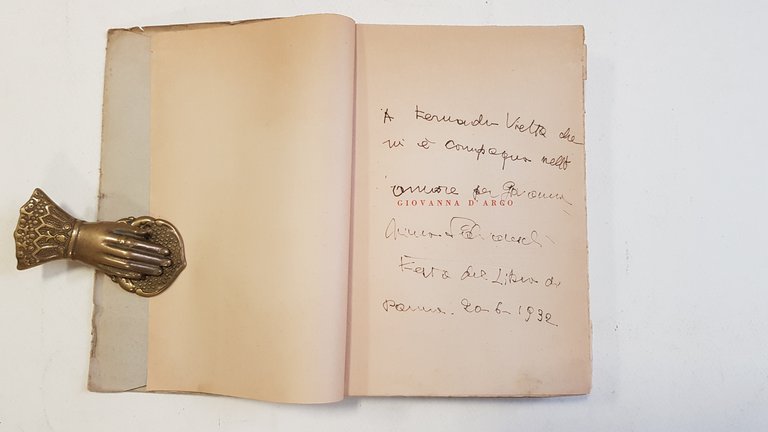 A Fernando Vietta che
mi è compagno nell'
amore per Giovanna
GIOVANNA D'ARCO
Festa del Libro di
Parma. 20-6-1932